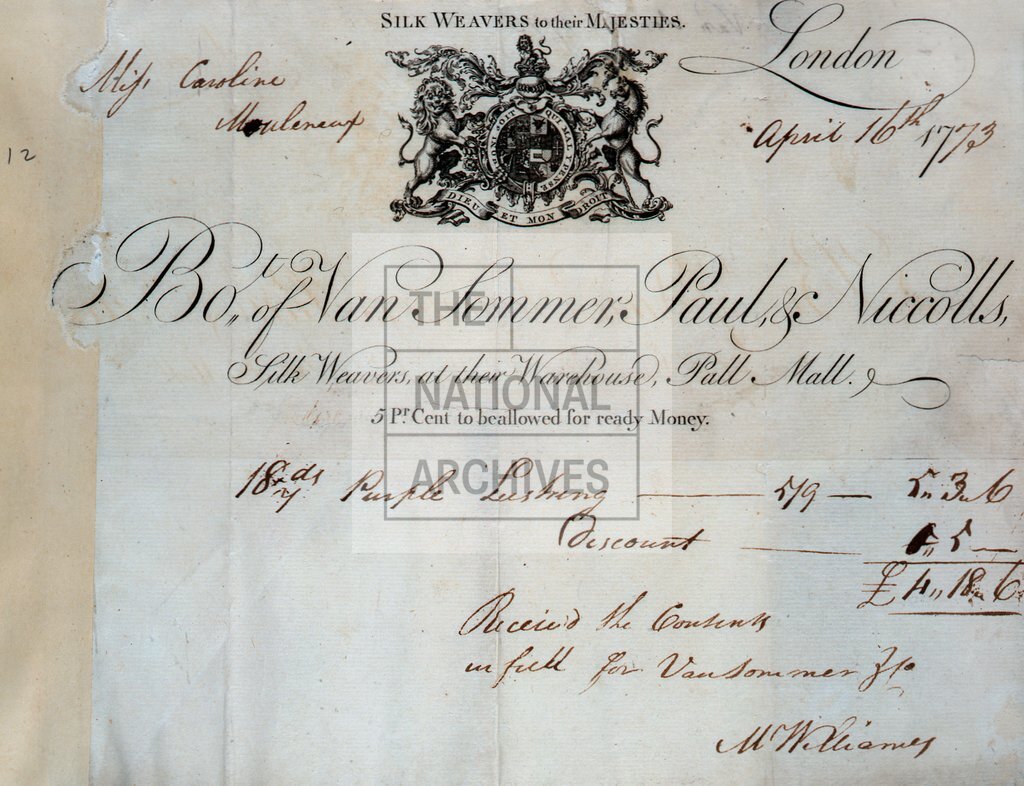 SILK WEAVERS to their MAJESTIES.
London
Miss Caroline
Mouleneux
April 16th 1773
HONI SOIT QUI MAL Y PENSE
DIEU ET MON DROIT
12
Bot. of Van Sommer, Paul, & Niccolls,
Silk Weavers, at their Warehouse, Pall Mall.
5 Pr. Cent to be allowed for ready Money.
THE
NATIONAL
ARCHIVES
18 yds Purple Lustring — 5/9 — 5,, 3,, 6
Discount — 5 —
£4,, 18,, 6
Receiv'd the Contents
in full for Vansommer & Co
M Williames